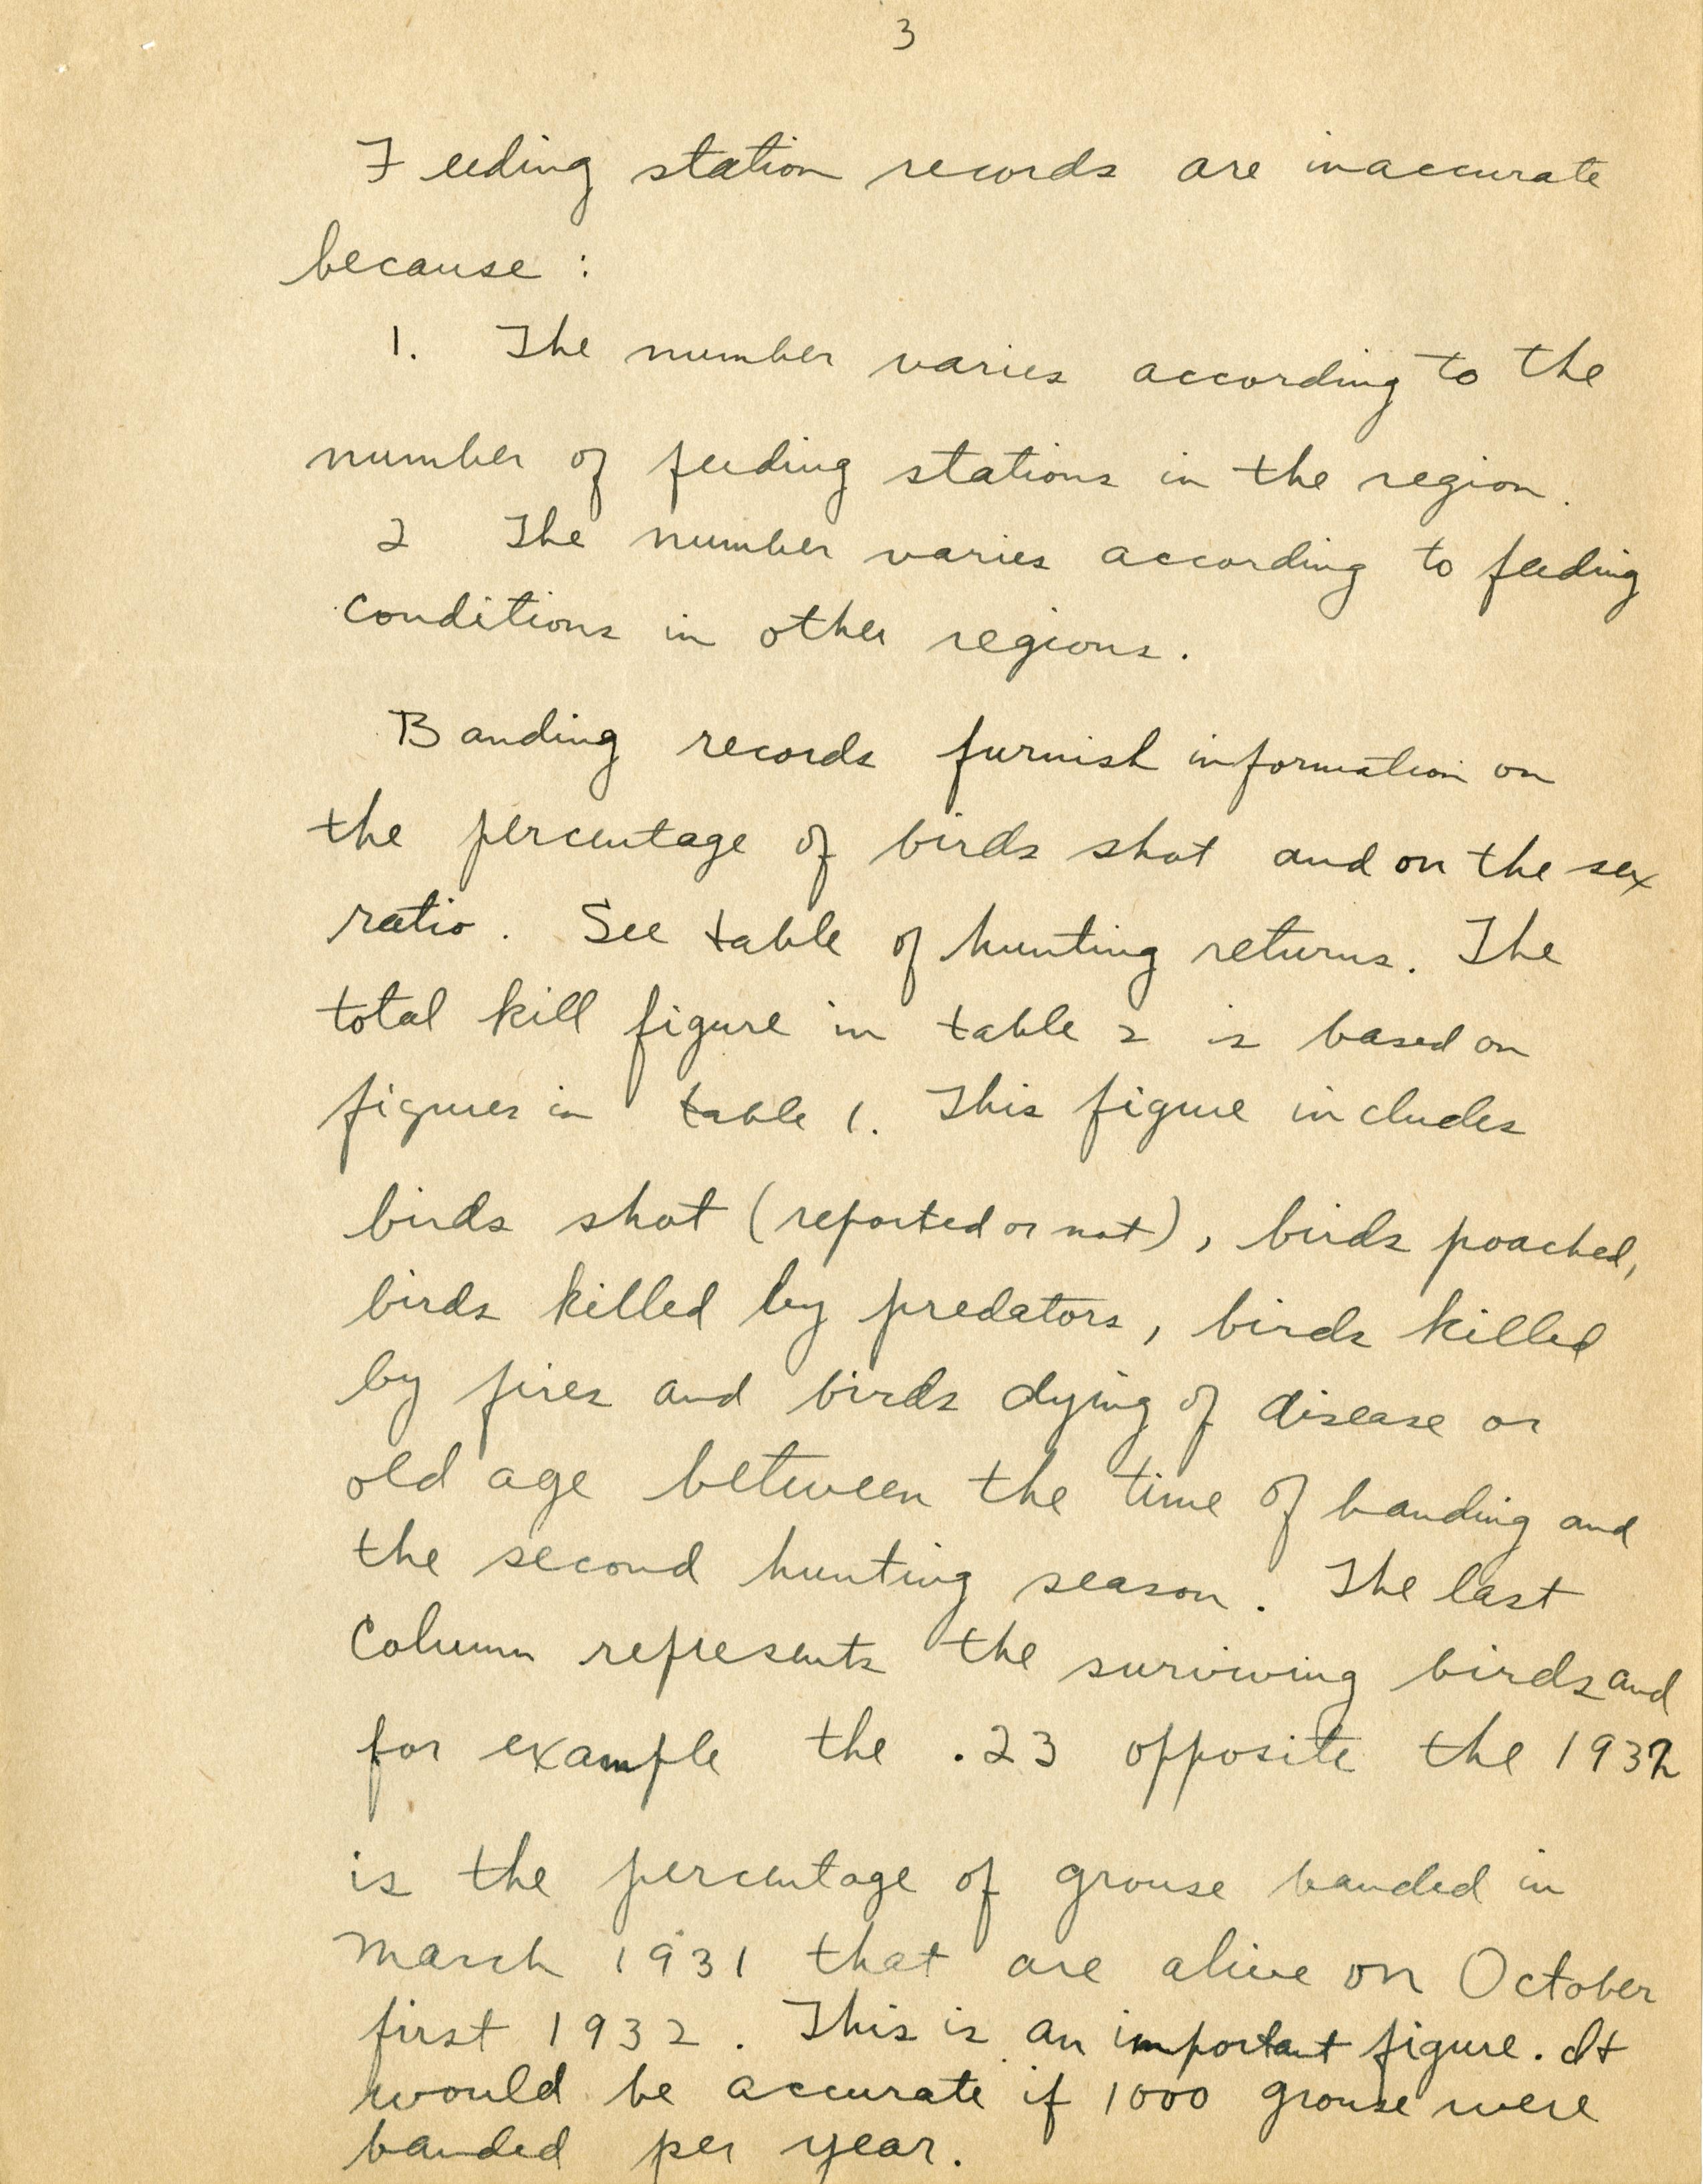 3
Feeding station records are inaccurate
because :
1. The number varies according to the
number of feeding stations in the region.
2 The number varies according to feeding
conditions in other regions.
Banding records furnish information on
the percentage of birds shot and on the sex
ratio. See table of hunting returns. The
total kill figure in table 2 is based on
figures in table 1. This figure includes
birds shot (reported or not), birds poached,
birds killed by predators, birds killed
by fires and birds dying of disease or
old age between the time of banding and
the second hunting season. The last
Column represents the surviving birds and
for example the .23 opposite the 1932
is the percentage of grouse banded in
March 1931 that are alive on October
first 1932. This is an important figure. It
would be accurate if 1000 grouse were
banded per year.